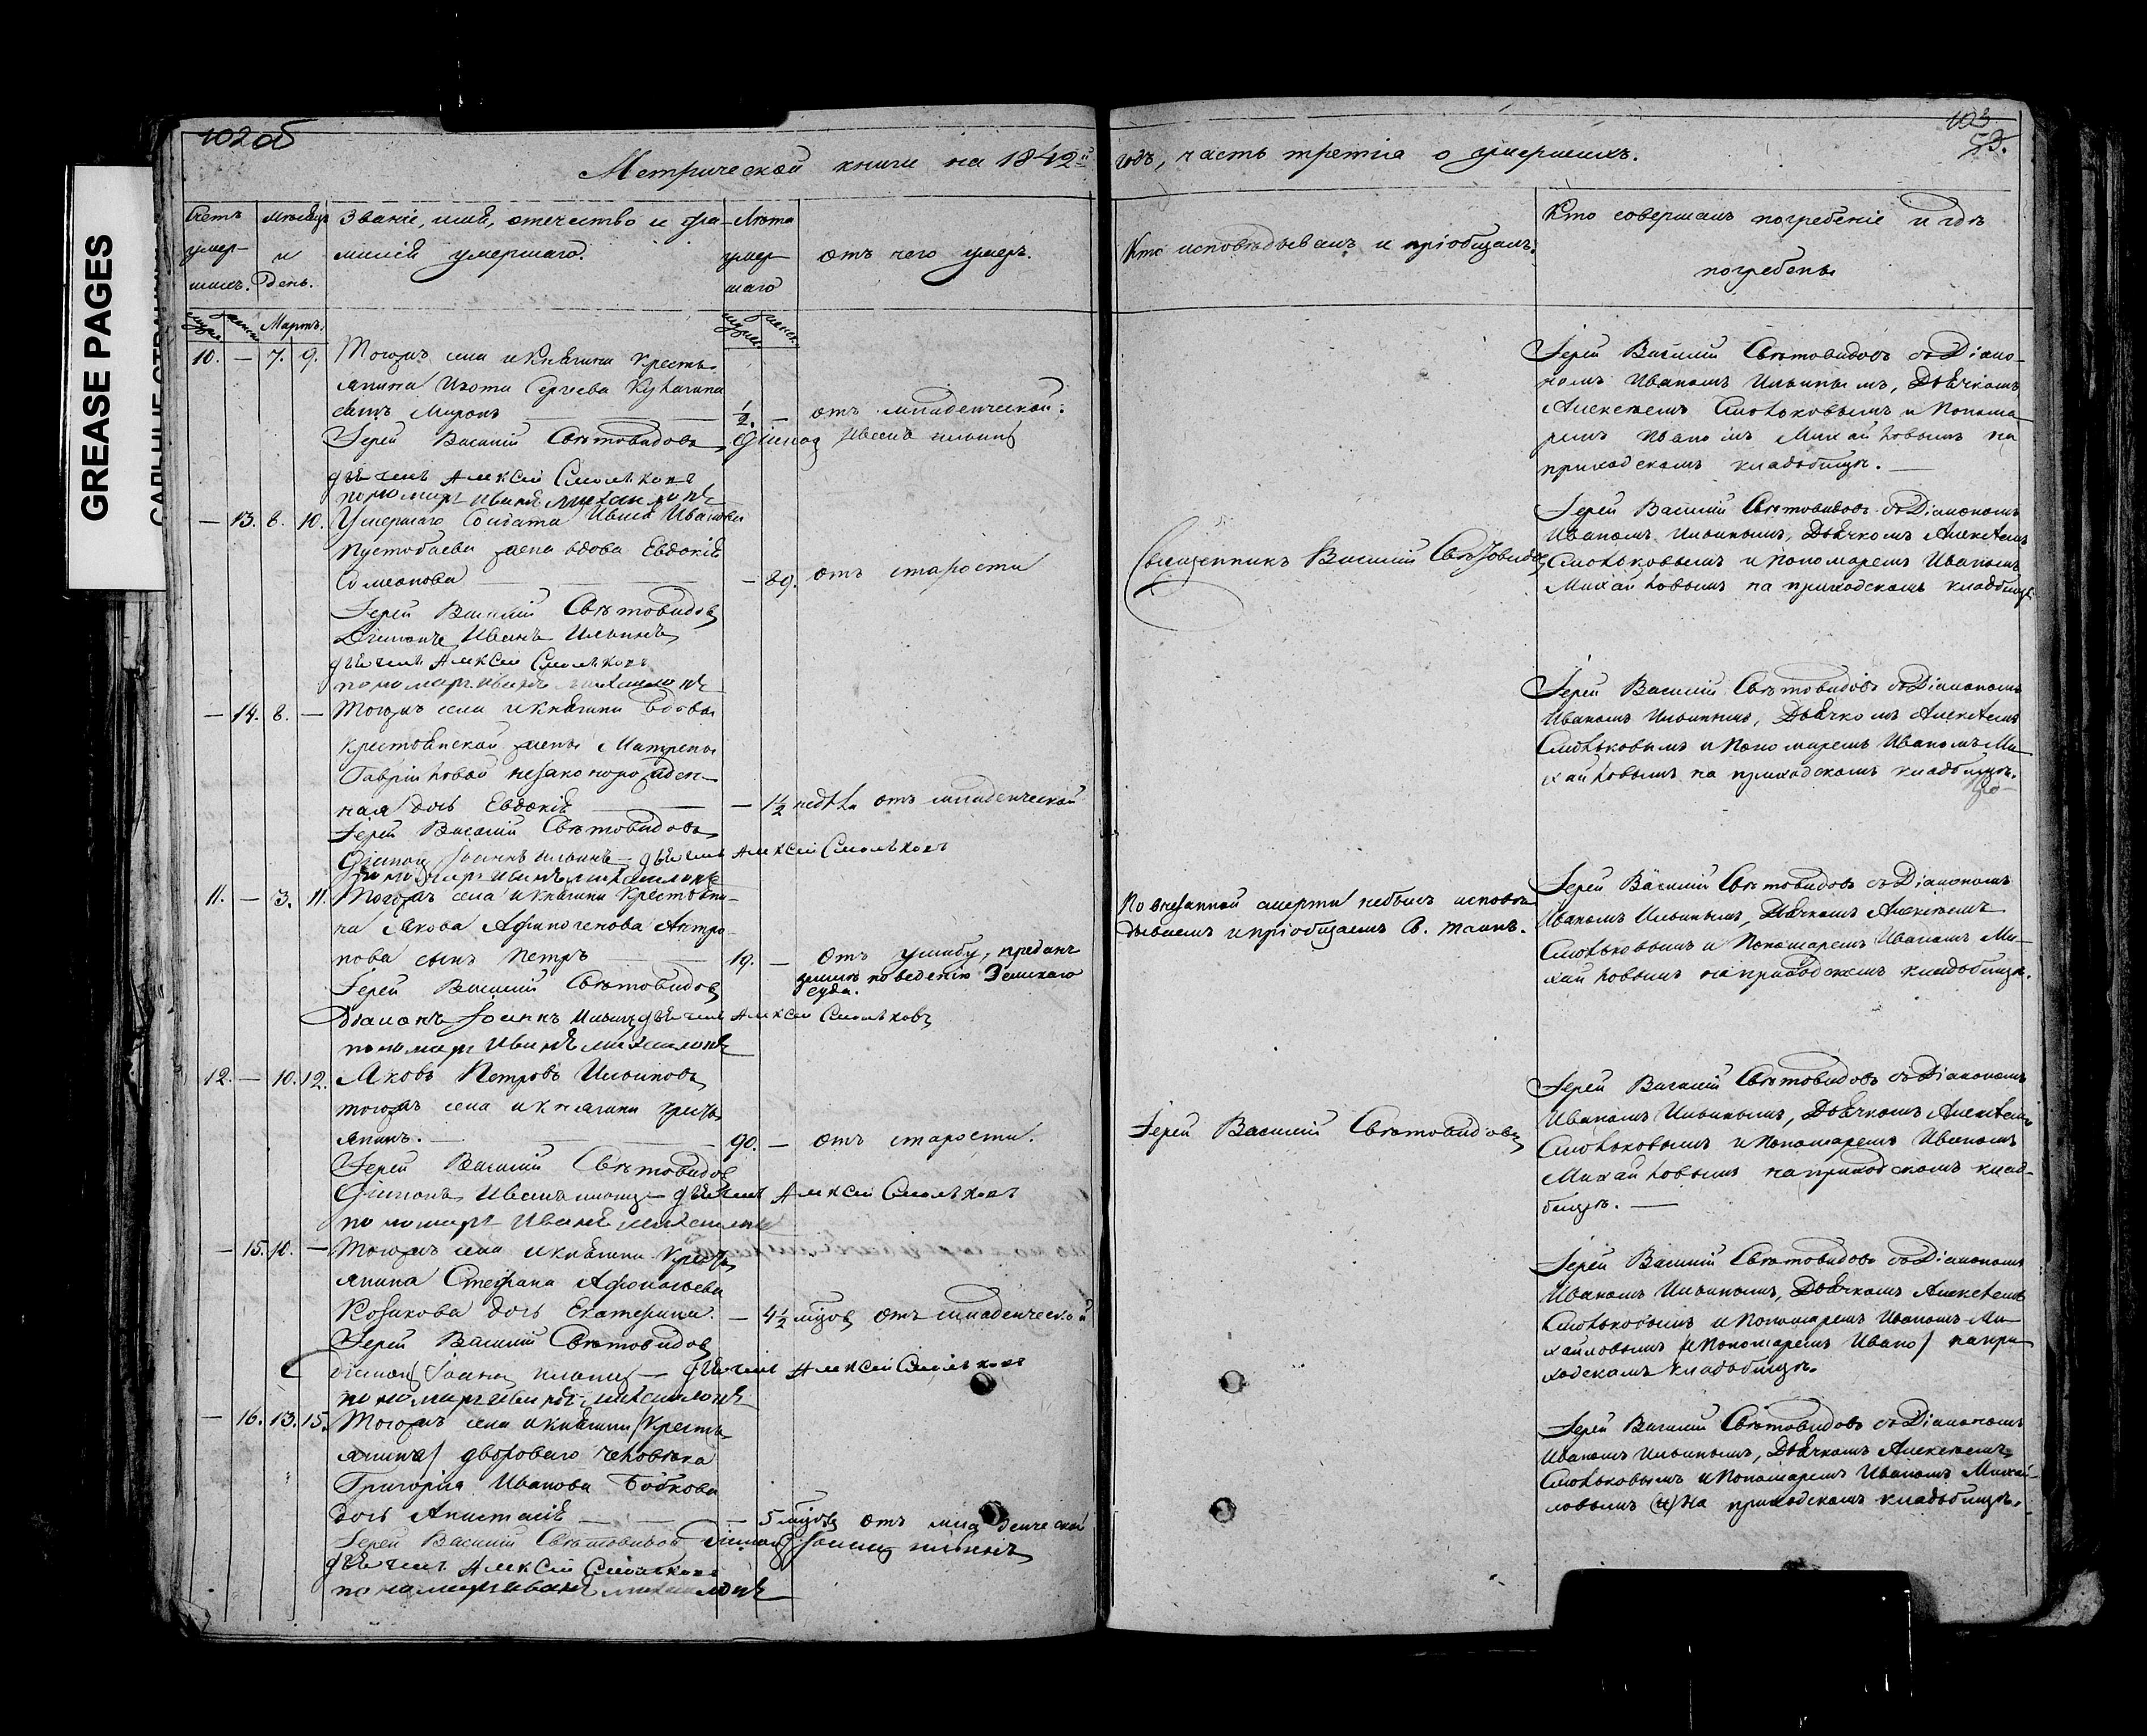 GREASE PAGES
102 об
103.
53.
Метрической книги на 1842й годъ, часть третія о умершихъ.
Счетъ умер-шихъ.
Мѣсяцъ и день.
Званіе, имя, отечество и фа-
милія умершаго.
Лѣта умер-шаго
отъ чего умеръ.
Кто исповѣдывалъ и пріобщалъ.
Кто совершалъ погребеніе и гдѣ
погребены
Мартъ.
10. — 7. 9. Тогожъ села Княгини кресть-
янина Изота Сергѣева
сынъ Миронъ ½. — отъ младенческой.
Іерей Василій Свѣтовидовъ
дьячекъ Алексѣй Смольковъ
пономарь Иванъ Михайловъ
Іерей Василій Свѣтовидовъ съ Діако-
номъ Иваномъ Ильинымъ, Дьячкомъ
Алексѣемъ Смольковымъ и Понома-
ремъ Иваномъ Михайловымъ на
приходскомъ кладбищѣ. —
— 13. 8. 10. Умершаго Солдата Ивана Иванова
Пустобаева жена вдова Евдокія
Симеонова — 89. отъ старости
Іерей Василій Свѣтовидовъ
Діаконъ Иванъ Ильинъ
дьячекъ Алексѣй Смольковъ
пономарь Иванъ Михайловъ
Священникъ Василій Свѣтовидовъ
Іерей Василій Свѣтовидовъ съ Діакономъ
Иваномъ Ильинымъ, Дьячкомъ Алексѣемъ
Смольковымъ и Пономаремъ Иваномъ
Михайловымъ на приходскомъ кладбищѣ
— 14. 8. — Тогожъ села Княгини вдовы
крестьянской жены Матрены
Гавріиловой незаконорожден-
ная дочь Евдокія — 1½ недѣл. отъ младенческой
Іерей Василій Свѣтовидовъ
Діаконъ Іоаннъ Ильинъ дьячекъ Алексѣй Смольковъ
пономарь Иванъ Михайловъ
Іерей Василій Свѣтовидовъ съ Діакономъ
Иваномъ Ильинымъ, Дьячкомъ Алексѣемъ
Смольковымъ и Пономаремъ Иваномъ Ми-
хайловымъ на приходскомъ кладбищѣ.
11. — 3. 11. Тогожъ села Княгини крестьяни-
на Якова Афиногенова Антро-
пова сынъ Петръ 19. — Отъ ушибу, преданъ
землѣ по веденію Земскаго
суда.
Іерей Василій Свѣтовидовъ
Діаконъ Іоаннъ Ильинъ дьячекъ Алексѣй Смольковъ
пономарь Иванъ Михайловъ
По внезапной смерти небылъ исповѣ-
дываемъ и пріобщаемъ С. Таинъ.
Іерей Василій Свѣтовидовъ съ Діакономъ
Иваномъ Ильинымъ, Дьячкомъ Алексѣемъ
Смольковымъ и Пономаремъ Иваномъ Ми-
хайловымъ на приходскомъ кладбищѣ.
12. — 10. 12. Яковъ Петровъ Ильиновъ
тогожъ села Княгини кресть-
янинъ. — 90. — отъ старости.
Іерей Василій Свѣтовидовъ
Діаконъ Иванъ Ильинъ дьячекъ Алексѣй Смольковъ
пономарь Иванъ Михайловъ
Іерей Василій Свѣтовидовъ
Іерей Василій Свѣтовидовъ съ Діакономъ
Иваномъ Ильинымъ, Дьячкомъ Алексѣемъ
Смольковымъ и Пономаремъ Иваномъ
Михайловымъ на приходскомъ клад-
бищѣ. —
— 15. 10. — Тогожъ села Княгини кресть-
янина Стефана Афонасьева
Козакова дочь Екатерина. — 4½ мѣсяцовъ отъ младенческой
Іерей Василій Свѣтовидовъ
діаконъ Іоаннъ Ильинъ — дьячекъ Алексѣй Смольковъ
пономарь Иванъ Михайловъ
Іерей Василій Свѣтовидовъ съ Діакономъ
Иваномъ Ильинымъ, Дьячкомъ Алексѣемъ
Смольковымъ и Пономаремъ Иваномъ Ми-
хайловымъ (и Пономаремъ Ивано) на при-
ходскомъ кладбищѣ.
— 16. 13. 15. Тогожъ села Княгини (кресть-
янина) двороваго человѣка
Григорія Иванова Бобкова
дочь Анастасія — 5 мѣсяцовъ отъ младенческой
Іерей Василій Свѣтовидовъ Діаконъ Іоаннъ Ильинъ
дьячекъ Алексѣй Смольковъ
пономарь Иванъ Михайловъ
Іерей Василій Свѣтовидовъ съ Діакономъ
Иваномъ Ильинымъ, Дьячкомъ Алексѣемъ
Смольковымъ и Пономаремъ Иваномъ Михай-
ловымъ (и) на приходскомъ кладбищѣ.